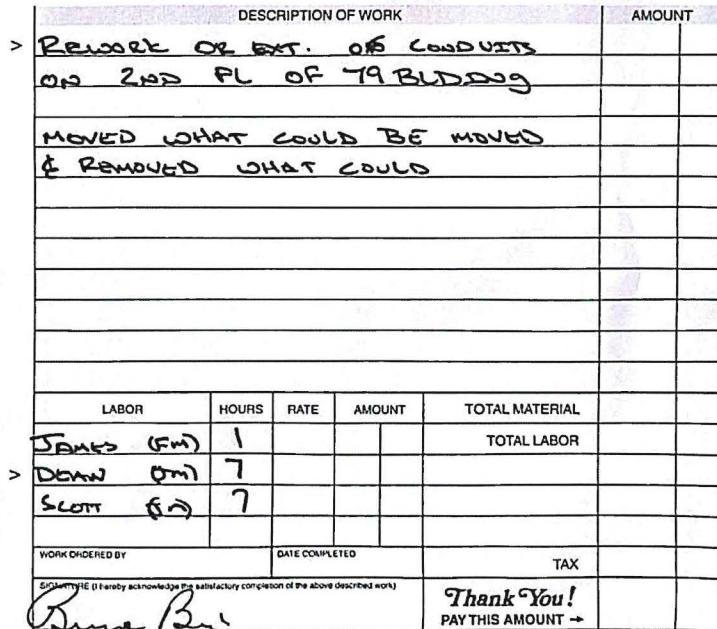 DESCRIPTION OF WORK AMOUNT
> REWORK OR EXT. OF CONDUITS
ON 2ND FL OF 79 BLDDNG
MOVED WHAT COULD BE MOVED
& REMOVED WHAT COULD
LABOR HOURS RATE AMOUNT TOTAL MATERIAL
JAMES (FM) 1 TOTAL LABOR
> DEAN (JM) 7
SCOTT 7
WORK ORDERED BY DATE COMPLETED TAX
SIGNATURE (I hereby acknowledge the satisfactory completion of the above described work)
Thank You!
PAY THIS AMOUNT →